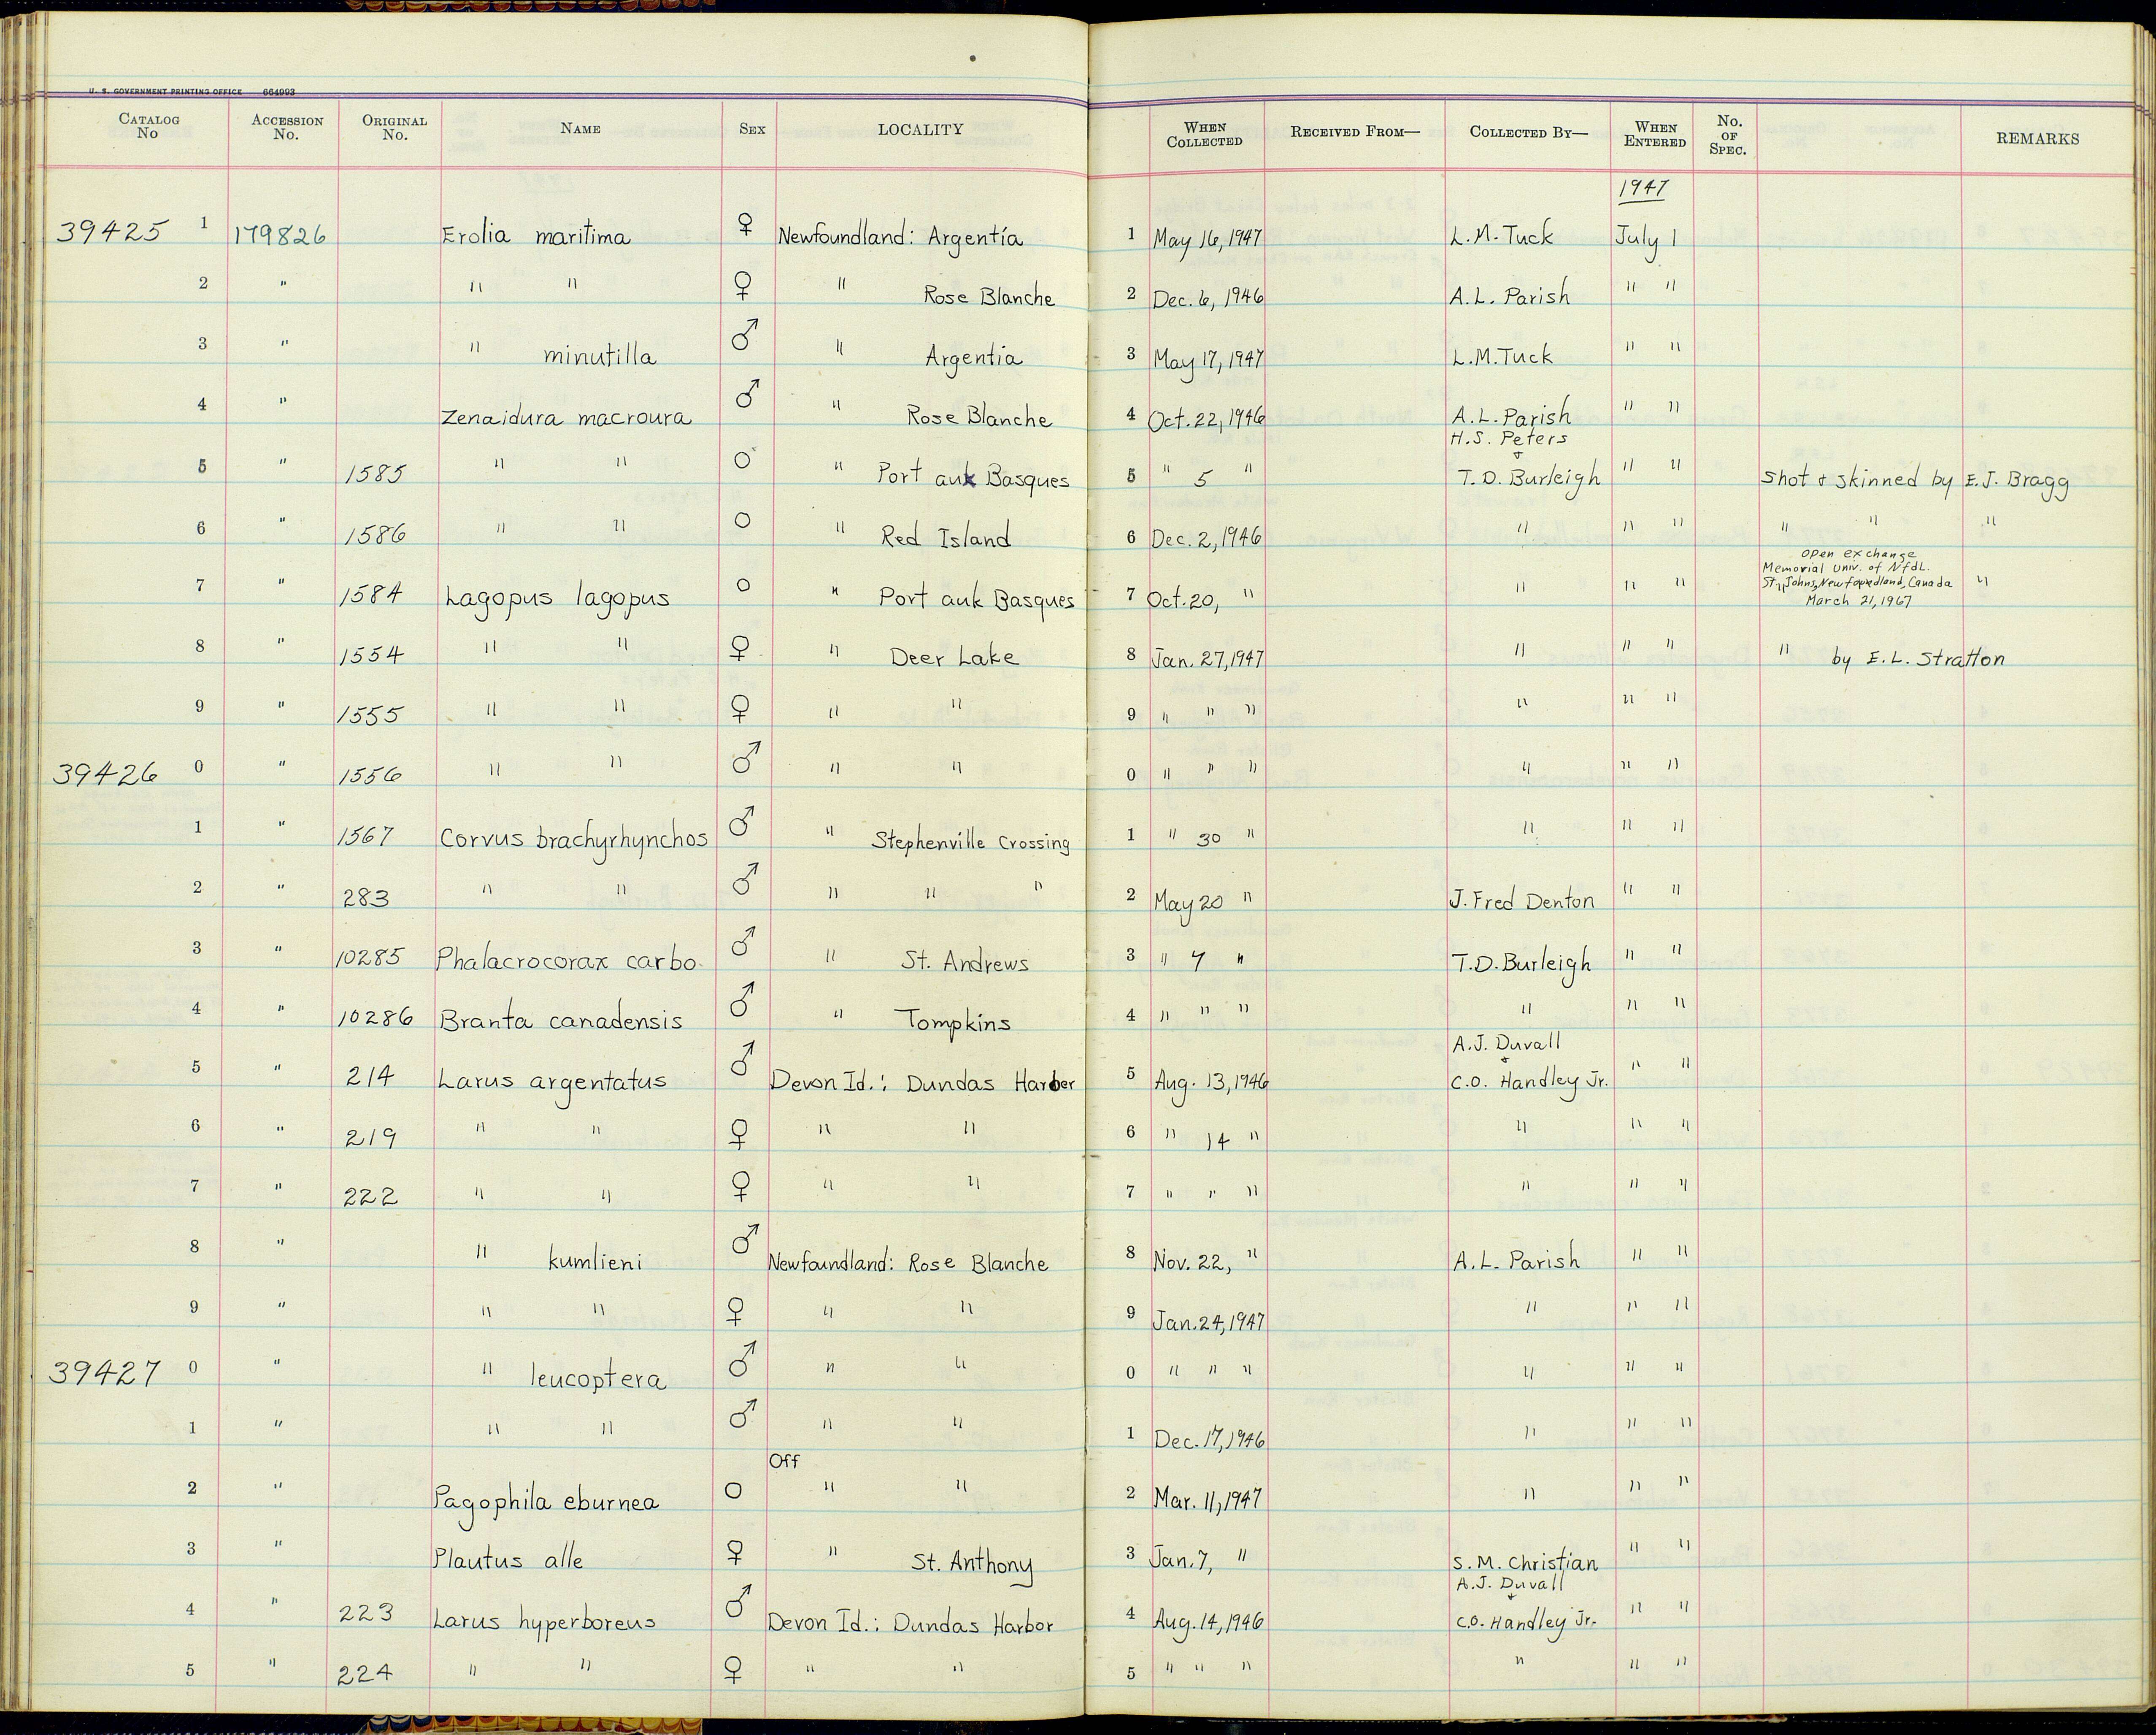 U. S. GOVERNMENT PRINTING OFFICE 664993
CATALOG No ACCESSION No. ORIGINAL No. NAME SEX LOCALITY WHEN COLLECTED RECEIVED FROM— COLLECTED BY— WHEN ENTERED No. OF SPEC. REMARKS
1947
39425 1 179826 Erolia maritima ♀ Newfoundland: Argentia 1 May 16, 1947 L.M. Tuck July 1
2 " " " ♀ " Rose Blanche 2 Dec. 6, 1946 A.L. Parish " "
3 " " minutilla ♂ " Argentia 3 May 17, 1947 L.M. Tuck " "
4 " Zenaidura macroura ♂ " Rose Blanche 4 Oct. 22, 1946 A.L. Parish " "
H.S. Peters
5 " 1585 " " ♂ " Port aux Basques 5 " 5 " & T.D. Burleigh " " Shot & skinned by E.J. Bragg
6 " 1586 " " O " Red Island 6 Dec. 2, 1946 " " " " " "
open exchange
Memorial Univ. of Nfdl.
7 " 1584 Lagopus lagopus O " Port auk Basques 7 Oct. 20, " " " " St. Johns, Newfoundland, Canada "
March 21, 1967
8 " 1554 " " ♀ " Deer Lake 8 Jan. 27, 1947 " " " " by E.L. Stratton
9 " 1555 " " ♀ " " 9 " " " " " "
39426 0 " 1556 " " ♂ " " 0 " " " " " "
1 " 1567 Corvus brachyrhynchos ♂ " Stephenville Crossing 1 " 30 " " " "
2 " 283 " " ♂ " " " 2 May 20 " J. Fred Denton " "
3 " 10285 Phalacrocorax carbo ♂ " St. Andrews 3 " 7 " T.D. Burleigh " "
4 " 10286 Branta canadensis ♂ " Tompkins 4 " " " " " "
A.J. Duvall
5 " 214 Larus argentatus ♂ Devon Id.: Dundas Harber 5 Aug. 13, 1946 & C.O. Handley Jr. " "
6 " 219 " " ♀ " " 6 " 14 " " " "
7 " 222 " " ♀ " " 7 " " " " " "
8 " " kumlieni ♂ Newfoundland: Rose Blanche 8 Nov. 22, " A.L. Parish " "
9 " " " ♀ " " 9 Jan. 24, 1947 " " "
39427 0 " " leucoptera ♂ " " 0 " " " " " "
1 " " " ♂ " " 1 Dec. 17, 1946 " " "
Off
2 " Pagophila eburnea O " " 2 Mar. 11, 1947 " " "
3 " Plautus alle ♀ " St. Anthony 3 Jan. 7, " S.M. Christian " "
A.J. Duvall
4 " 223 Larus hyperboreus ♂ Devon Id.: Dundas Harbor 4 Aug. 14, 1946 & C.O. Handley Jr. " "
5 " 224 " " ♀ " " 5 " " " " " "